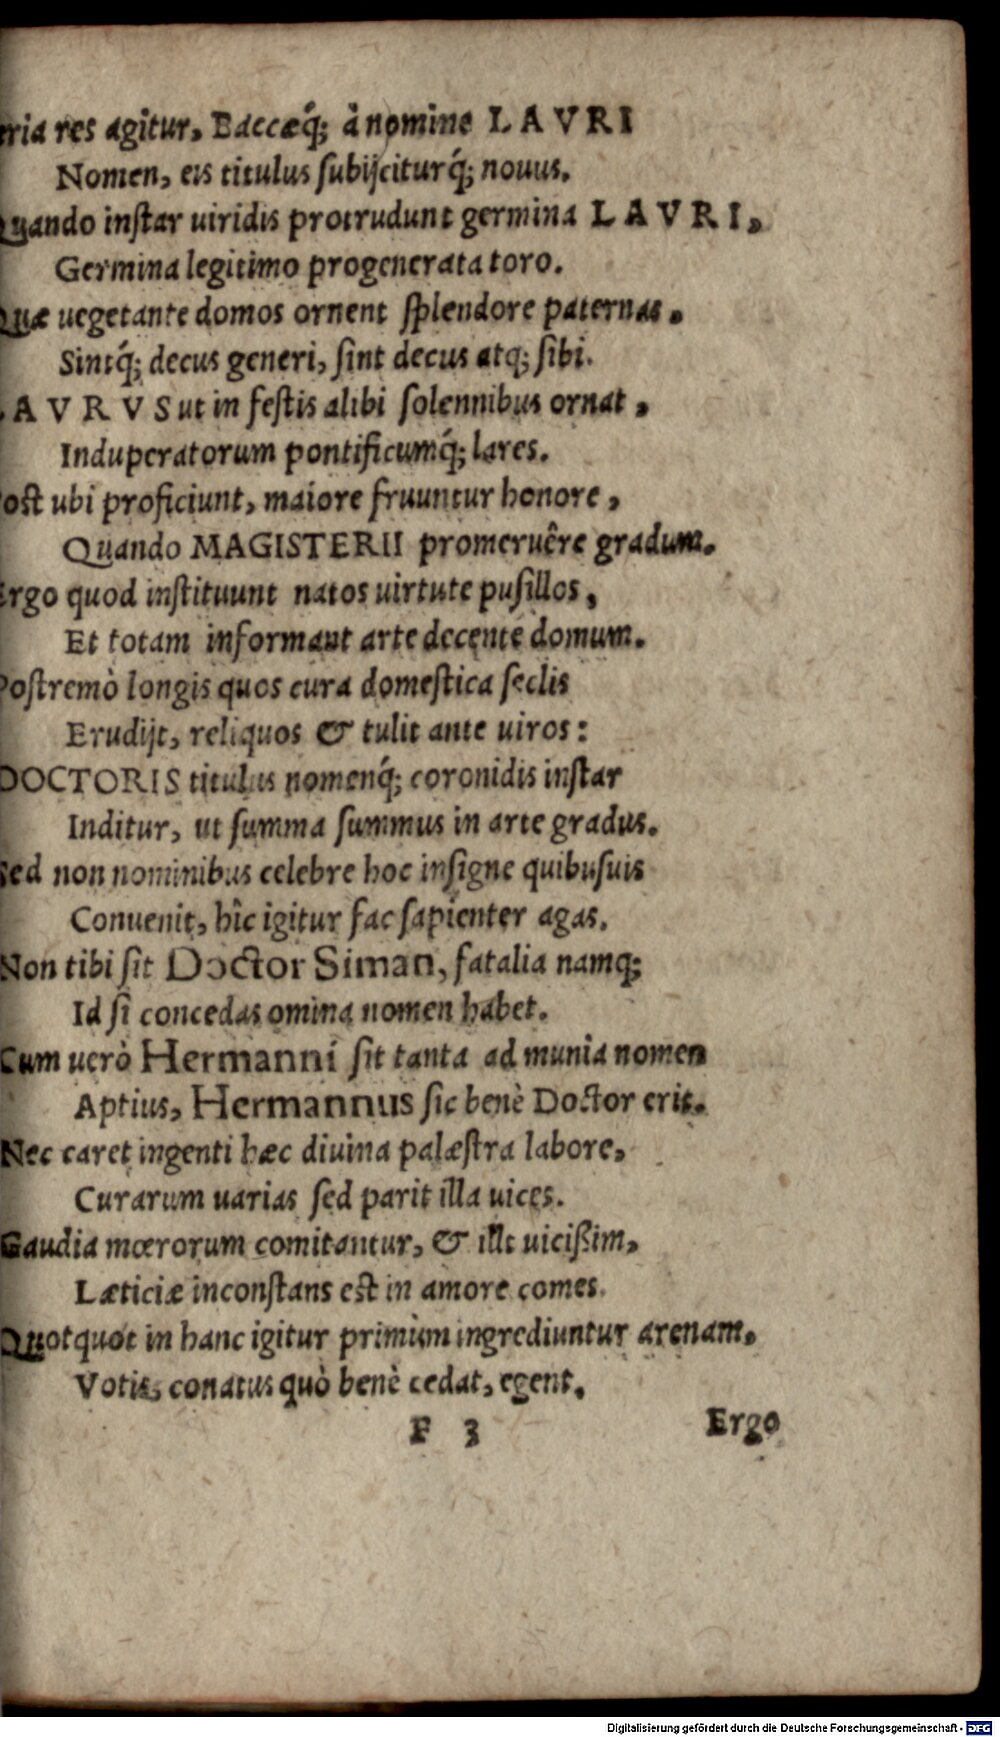 ria res agitur, Baccæq́; à nomine LAVRI
Nomen, eis titulus subijciturq́; nouus.
Quando instar uiridis protrudunt germina LAVRI,
Germina legitimo progenerata toro.
Quæ uegetante domos ornent splendore paternas.
Sintq́; decus generi, sint decus atq; sibi.
LAVRVS ut in festis alibi solennibus ornat,
Induperatorum pontificumq́; lares.
ost ubi proficiunt, maiore fruuntur honore,
Quando MAGISTERII promeruêre gradum.
Ergo quod instituunt natos uirtute pusillos,
Et totam informant arte decente domum.
Postremò longis quos cura domestica seclis
Erudijt, reliquos & tulit ante uiros:
DOCTORIS titulus nomenq́; coronidis instar
Inditur, ut summa summus in arte gradus.
Sed non nominibus celebre hoc insigne quibusuis
Conuenit, hîc igitur fac sapienter agas.
Non tibi sit Doctor Siman, fatalia namq;
Id si concedas omina nomen habet.
Cum uerò Hermanni sit tanta ad munia nomen
Aptius, Hermannus sic benè Doctor erit.
Nec caret ingenti hæc diuina palæstra labore,
Curarum uarias sed parit illa uices.
Gaudia mœrorum comitantur, & ille uicißim,
Læticiæ inconstans est in amore comes.
Quotquot in hanc igitur primùm ingrediuntur arenam.
Votis, conatus quò benè cedat, egent.
F 3 Ergo
Digitalisierung gefördert durch die Deutsche Forschungsgemeinschaft - DFG